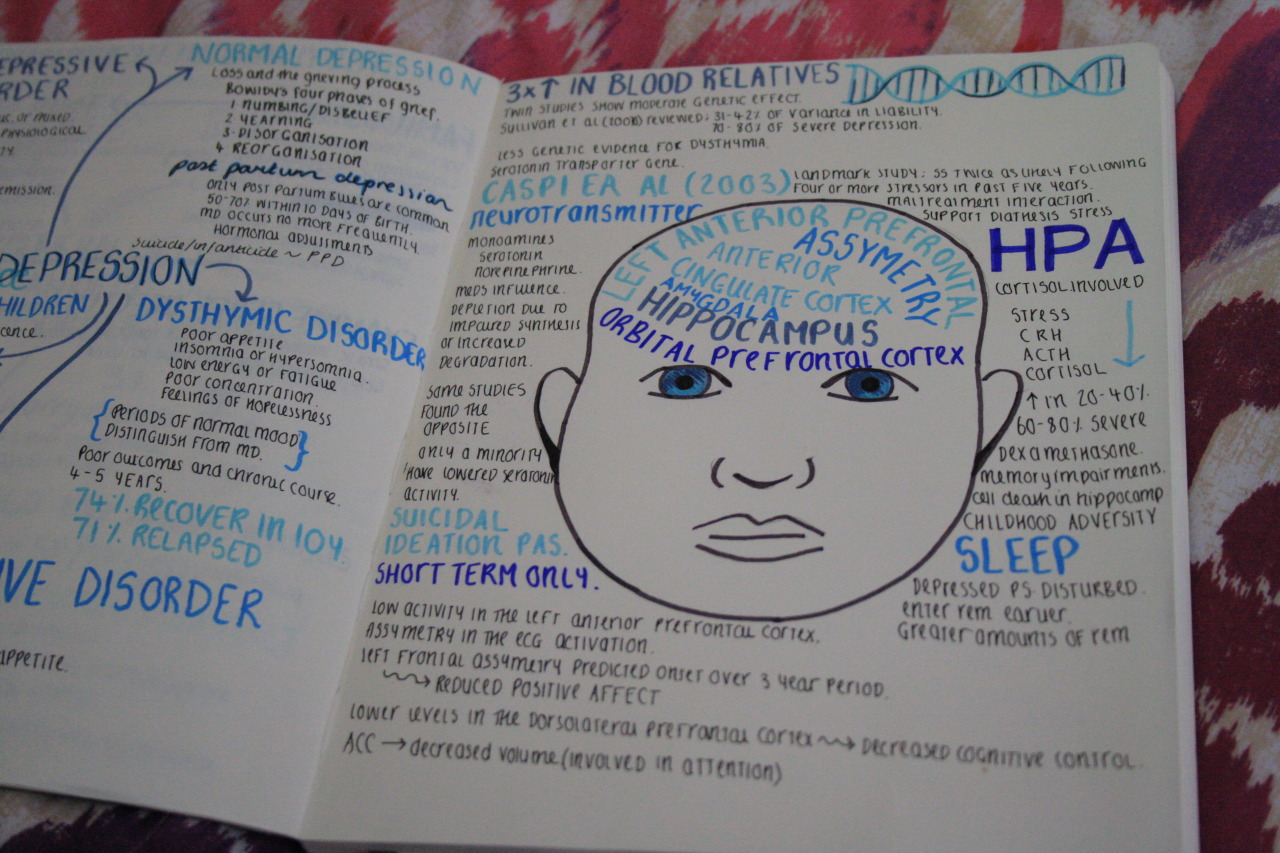 EPRESSIVE
RDER
PHYSIOLOGICAL
EMISSION.
NORMAL DEPRESSION
LOSS and the grieving process
BOWLBYS four phases of grief.
1 NUMBING/DISBELIEF
2 YEARNING
3 DISORGANISATION
4 REORGANISATION
post partum depression
ONLY POST PARTUM BLUES are common
50-70% WITHIN 10 DAYS OF BIRTH.
MD OCCURS NO MORE FREQUENTLY.
HORMONAL ADJUSTMENTS
suicide/infanticide ~ PPD
DEPRESSION
CHILDREN
DYSTHYMIC DISORDER
POOR appetite
INSOMNIA OR HYPERSOMNIA.
LOW ENERGY OR FATIGUE
POOR CONCENTRATION.
FEELINGS OF HOPELESSNESS
{PERIODS OF NORMAL MOOD
DISTINGUISH FROM MD.}
POOR OUTCOMES AND CHRONIC COURSE.
4-5 YEARS.
74% RECOVER IN 10Y.
71% RELAPSED
IVE DISORDER
APPETITE.
3x↑ IN BLOOD RELATIVES
TWIN STUDIES SHOW MODERATE GENETIC EFFECT.
SULLIVAN ET AL (2008) REVIEWED: 31-42% OF VARIANCE IN LIABILITY.
70-80% OF SEVERE DEPRESSION.
LESS GENETIC EVIDENCE FOR DYSTHYMIA.
SEROTONIN TRANSPORTER GENE.
CASPI EA AL (2003)
LANDMARK STUDY: SS TWICE AS LIKELY FOLLOWING
FOUR OR MORE STRESSORS IN PAST FIVE YEARS.
MALTREATMENT INTERACTION.
SUPPORT DIATHESIS STRESS
neurotransmitter
MONOAMINES
SEROTONIN
NOREPINEPHRINE.
MEDS INFLUENCE.
DEPLETION DUE TO
IMPAIRED SYNTHESIS
OR INCREASED
DEGRADATION.
SOME STUDIES
FOUND THE
OPPOSITE
ONLY A MINORITY
HAVE LOWERED SEROTONIN
ACTIVITY.
SUICIDAL
IDEATION PAS.
SHORT TERM ONLY.
LEFT ANTERIOR PREFRONTAL
ASSYMETRY
ANTERIOR
CINGULATE CORTEX
AMYGDALA
HIPPOCAMPUS
ORBITAL PREFRONTAL CORTEX
HPA
CORTISOL INVOLVED
STRESS
CRH
ACTH
CORTISOL
↑ IN 20-40%.
60-80% SEVERE
DEXAMETHASONE.
MEMORY IMPAIRMENTS.
CELL DEATH IN HIPPOCAMP
CHILDHOOD ADVERSITY
SLEEP
DEPRESSED PS DISTURBED.
ENTER REM EARLIER.
GREATER AMOUNTS OF REM
LOW ACTIVITY IN THE LEFT ANTERIOR PREFRONTAL CORTEX.
ASSYMETRY IN THE ECG ACTIVATION.
LEFT FRONTAL ASSYMETRY PREDICTED ONSET OVER 3 YEAR PERIOD.
→ REDUCED POSITIVE AFFECT
LOWER LEVELS IN THE DORSOLATERAL PREFRONTAL CORTEX → DECREASED COGNITIVE CONTROL.
ACC → decreased volume (involved in attention)